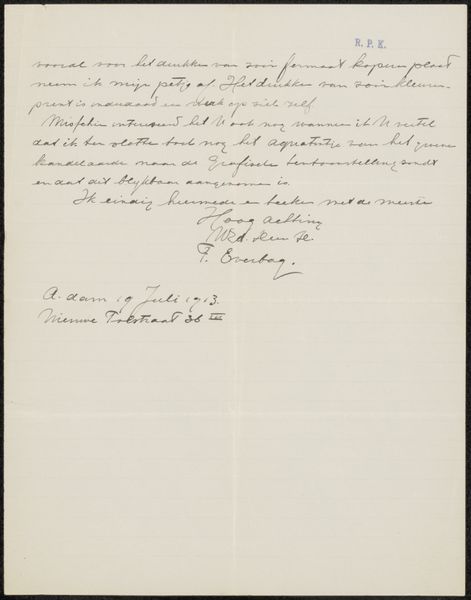 R. P. K.
vooral voor het drukken van zoo'n formaat koperen plaat
neem ik mijn petje af. Het drukken van zoo'n kleuren-
prent is inderdaad een vak op zich zelf.
Misschien interesseert het U ook nog wanneer ik U vertel
dat ik ten slotte toch nog het aquatintje van het
kandelaartje naar de Grafische tentoonstelling zondt
en dat dit blijkbaar aangenomen is.
Ik eindig hiermede en teeken met de meeste
Hoog achting
Uwd. dien. Dr.
F. Everbag.
A.dam 19 Juli 1913.
Nieuwe Tolstraat 36 III